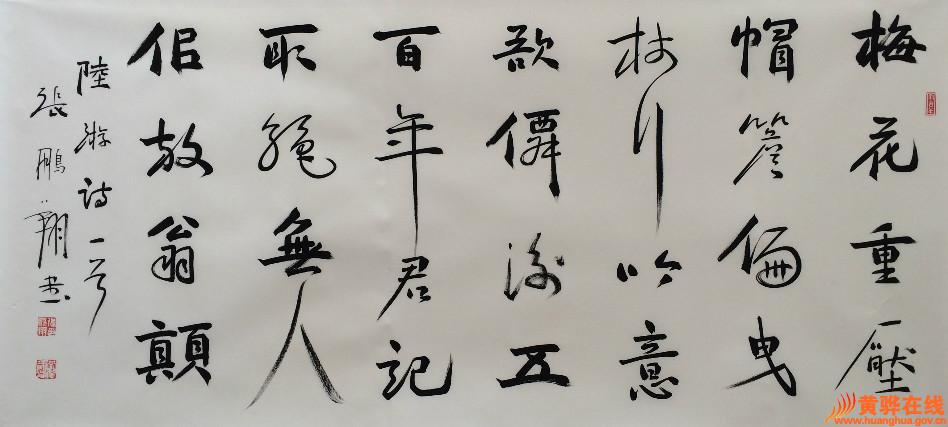 梅花重壓
帽簷偏曳
杖行吟意
欲僊後五
百年君記
取絕無人
佀放翁顛
陸游詩一首
張鵬翔書
黄骅在线
www.huanghua.gov.cn